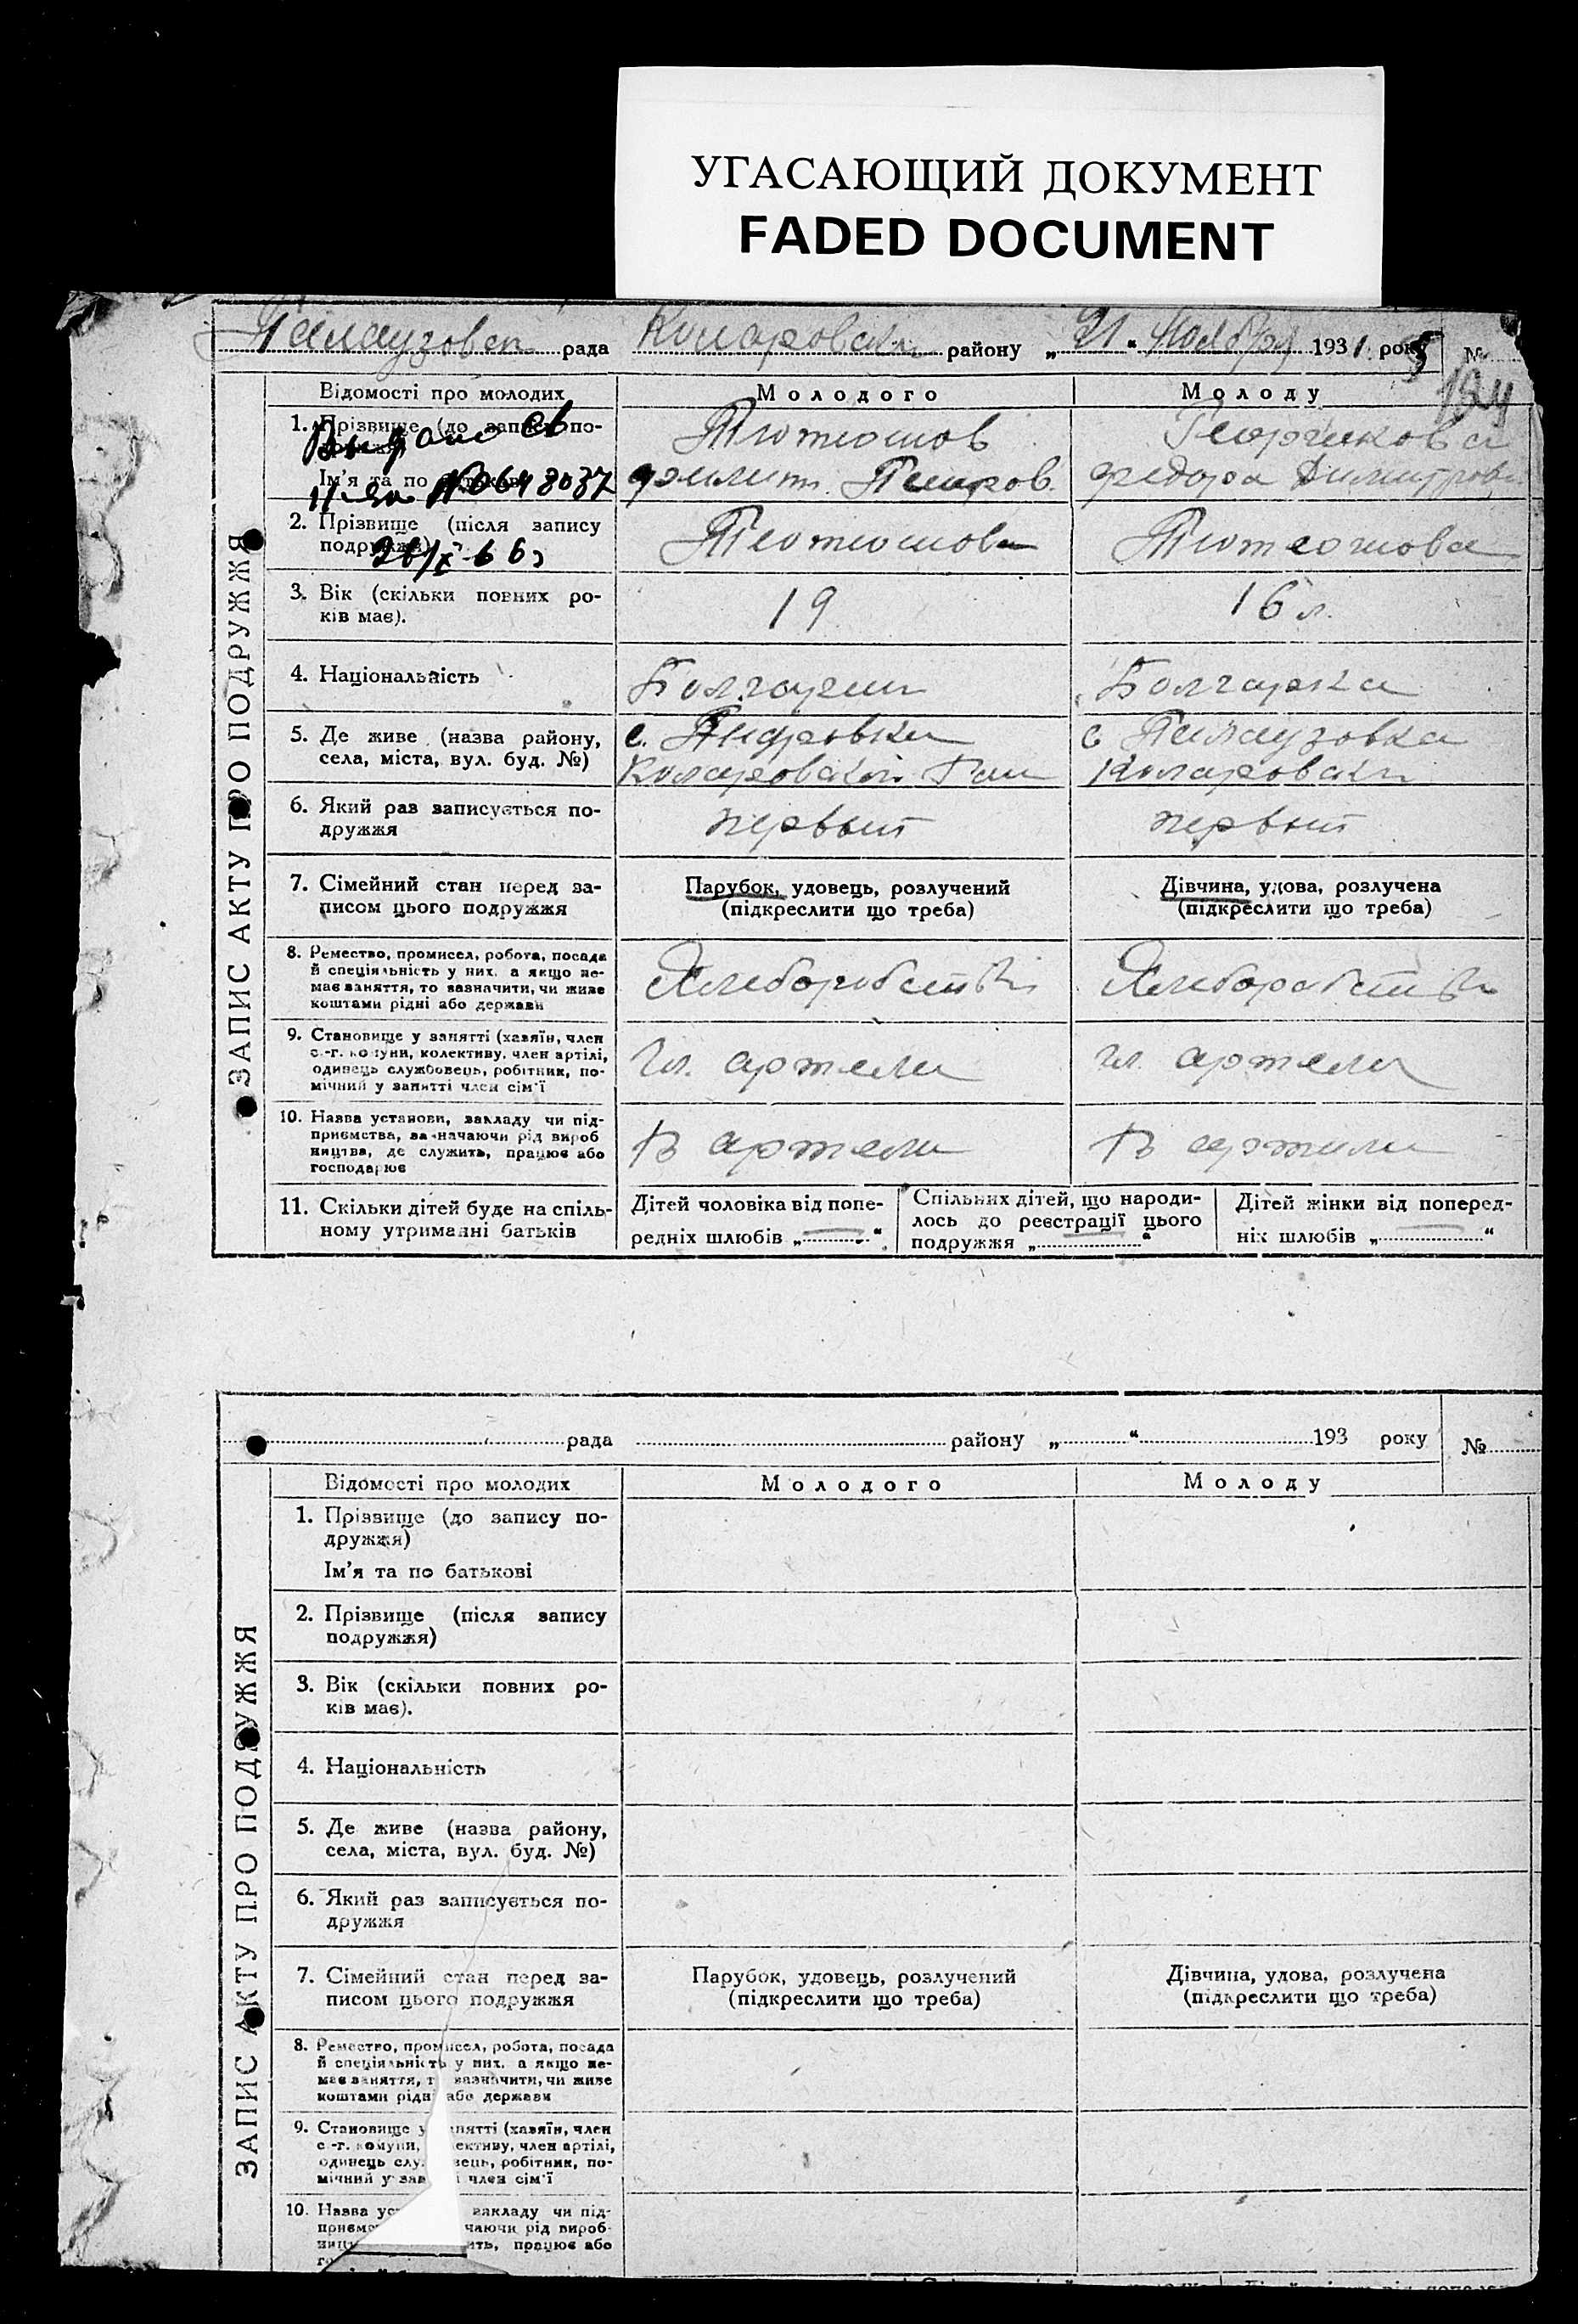 УГАСАЮЩИЙ ДОКУМЕНТ
FADED DOCUMENT
Палаузовск рада Коларовский району „21“ Ноября 1931 року №
124
Відомості про молодих Молодого Молоду
1. Прізвище (до запису подружжя)
Ім'я та по батькові
Выдано св
№ 0648037
Тютюнов
Филип Петров.
Георгиева
Федора Димитров
2. Прізвище (після запису подружжя)
Тютюнов
Тютюнова
3. Вік (скільки повних років має).
19
16 л.
4. Національність
Болгарин
Болгарка
5. Де живе (назва району, села, міста, вул. буд. №)
с.
Коларовский
с Палаузовка
Коларовский
6. Який раз записується подружжя
первый
первый
7. Сімейний стан перед записом цього подружжя
Парубок, удовець, розлучений
(підкреслити що треба)
Дівчина, удова, розлучена
(підкреслити що треба)
8. Ремество, промисел, робота, посада
й спеціяльність у них, а якщо не-
має заняття, то зазначити, чи живе
коштами рідні або держави
9. Становище у занятті (хазяїн, член
с.-г. комуни, колективу, член артілі,
одинець службовець, робітник, по-
мічний у занятті член сім'ї
Чл. артели
чл. артели
10. Назва установи, закладу чи під-
приємства, зазначаючи рід вироб
ництва, де служить, працює або
господарює
В артели
В артели
11. Скільки дітей буде на спіль-
ному утриманні батьків
Дітей чоловіка від попе-
редніх шлюбів „ “
Спільних дітей, що народи-
лось до реєстрації цього
подружжя „ “
Дітей жінки від поперед-
ніх шлюбів „ “
ЗАПИС АКТУ ПРО ПОДРУЖЖЯ
рада району „ “ 193 року №
Відомості про молодих Молодого Молоду
1. Прізвище (до запису по-
дружжя)
Ім'я та по батькові
2. Прізвище (після запису
подружжя)
3. Вік (скільки повних ро-
ків має).
4. Національність
5. Де живе (назва району,
села, міста, вул. буд. №)
6. Який раз записується по-
дружжя
7. Сімейний стан перед за-
писом цього подружжя
Парубок, удовець, розлучений
(підкреслити що треба)
Дівчина, удова, розлучена
(підкреслити що треба)
8. Ремество, промисел, робота, посада
й спеціяльність у них, а якщо не-
має заняття, т зазначити, чи живе
коштами рідн або держави
9. Становище у занятті (хазяїн, член
с.-г. комуни, лективу, член артілі,
одинець служ вець, робітник, по-
мічний у зан і член сім'ї
10. Назва ус закладу чи під-
приємс чаючи рід вироб-
ницт ить, працює або
ЗАПИС АКТУ ПРО ПОДРУЖЖЯ